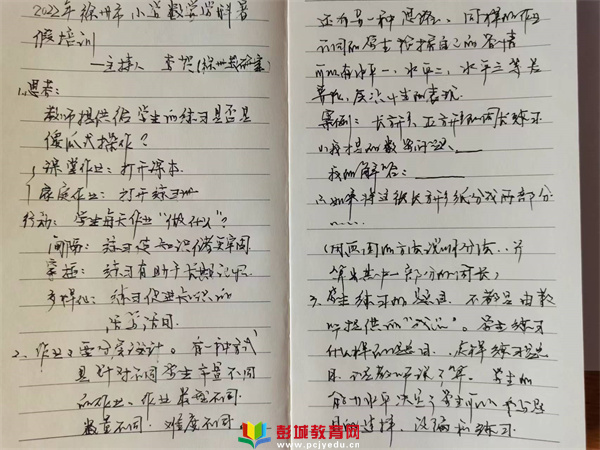 2022年徐州市小学数学学科暑
假培训
—主持人 李 (徐州教研室)
1.思考:
教师提供给学生的练习是否是
傻瓜式操作?
课堂作业: 打开课本
家庭作业: 打开练习
行动: 学生每天作业“做什么”?
间隔: 练习使知识储存牢固
穿插: 练习有助于长期记忆
多样化: 练习促进知识的
活学活用
2. 作业要分层设计。有一种方式
是针对不同学生布置不同
的作业。作业类型不同
数量不同. 难度不同.
还有另一种思路. 同样的作业
不同的学生根据自己的答情
可以有水平一, 水平二, 水平三等差
异化, 层次性的表现.
案例: 长方形、正方形的周长练习
(1)我提的数学问题:
我的解答:
(2)如果将这张长方形纸分成两部分
……
(用画图的方法说明分法, 并
算出其中一部分的周长)
3. 学生练习的题目, 不都是由教
师提供的“成品”。学生练习
什么样的题目, 怎样练习题
目, 不是教师说了算。学生的
能力水平决定了学生可以参与题
目的选择, 改编和练习.
彭城教育网
www.pcjyedu.cn